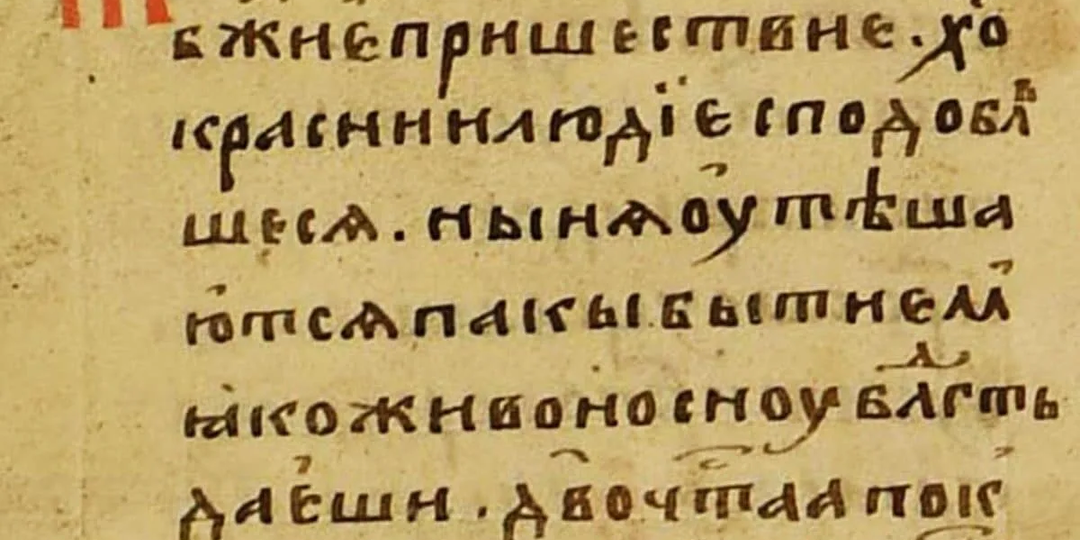 бжиепришествие. хо
красниилюдїесподобл҄ь
шеѧ. нынѧоутѣша
ютсѧпакыбытиемⷨ
ꙗкоживоносноублⷣгсть
даеши. дв҃очт҃аапок